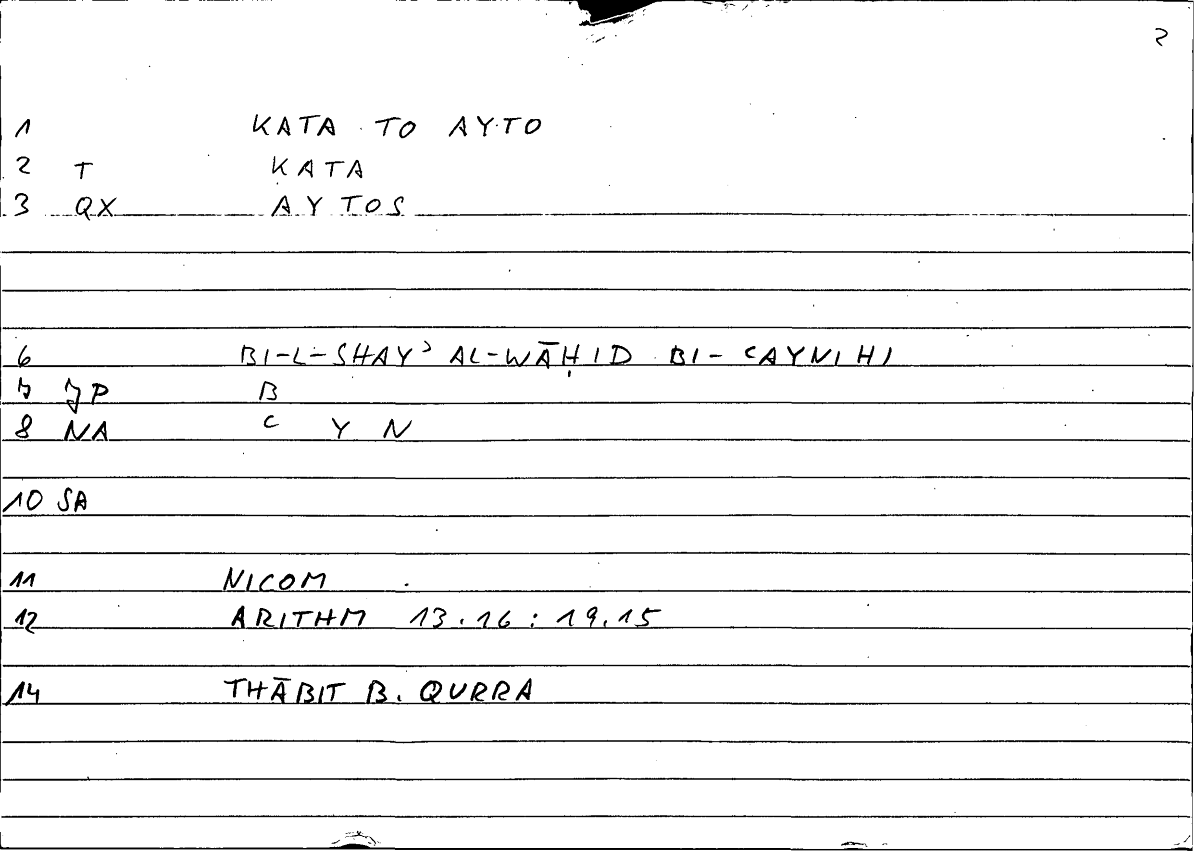 2
1 KATA TO AYTO
2 T KATA
3 QX AYTOS
6 BI-L-SHAYʾ AL-WĀḤID BI-ʿAYNIHI
7 JP B
8 NA ʿ Y N
10 SA
11 NICOM
12 ARITHM 13.16 : 19.15
14 THĀBIT B. QURRA